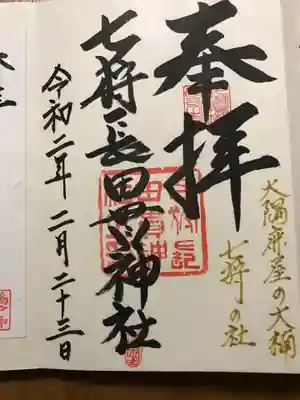 大隅鹿屋の大綱
七狩の社
奉拝
七狩長田貫神社
令和二年 二月二十三日